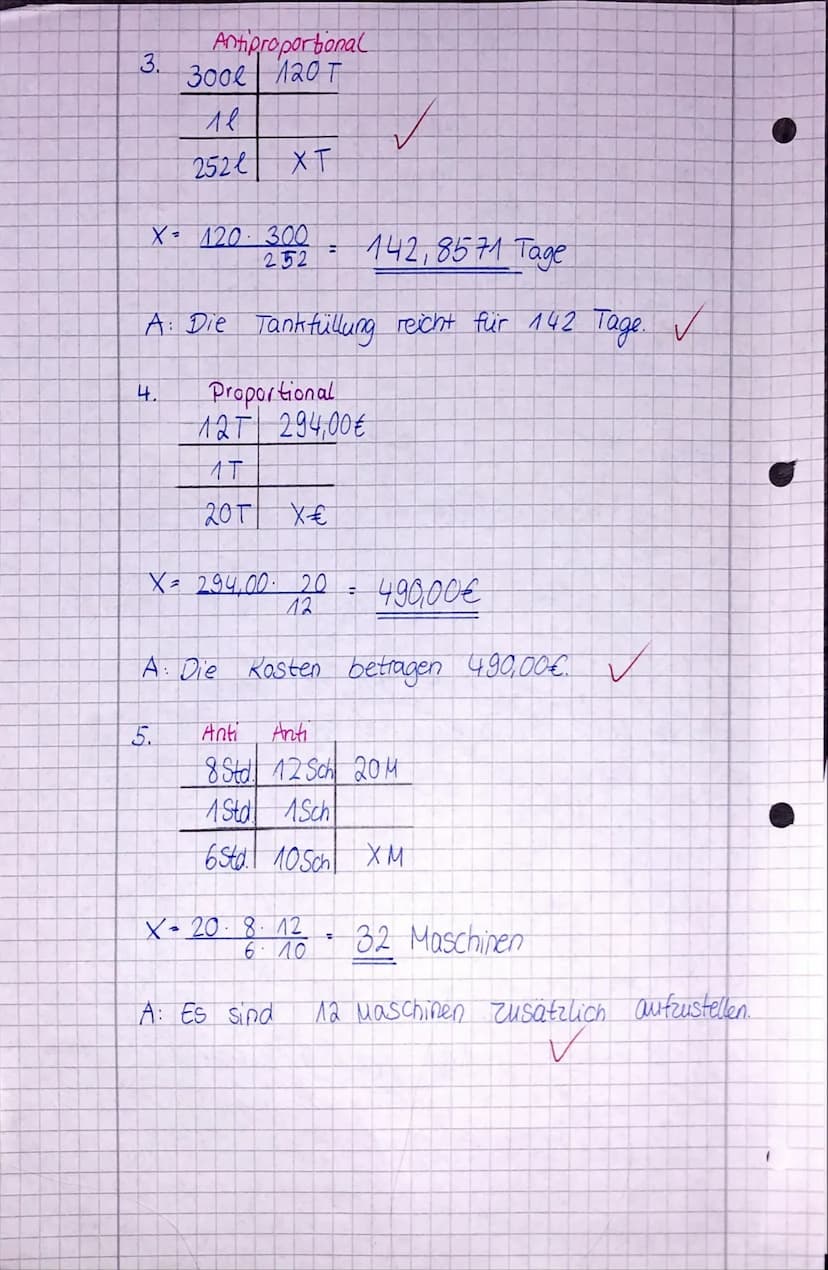 Antiproportional
3. 300l 120T
1l
252l XT
X= 120 · 300 / 252 = 142,8571 Tage
A: Die Tankfüllung reicht für 142 Tage. ✓
4. Proportional
12T 294,00€
1T
20T X€
X= 294,00 · 20 / 12 = 490,00€
A: Die Kosten betragen 490,00€. ✓
5. Anti Anti
8Std. 12Sch 20M
1Std. 1Sch
6Std. 10Sch XM
X= 20 · 8 · 12 / 6 · 10 = 32 Maschinen
A: Es sind 12 Maschinen zusätzlich aufzustellen.